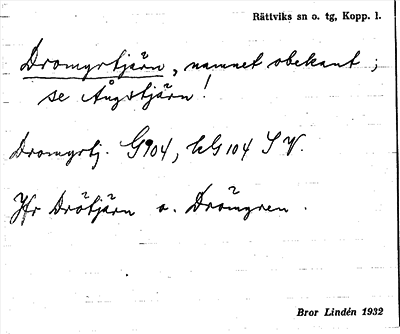 Rättviks sn o. tg, Kopp. l.
Dromyrtjärn, namnet obekant;
se Ångstjärn!
Dromyrtj. G904, kG104 SV.
Jfr Drötjärn o. Drömyren.
Bror Lindén 1932